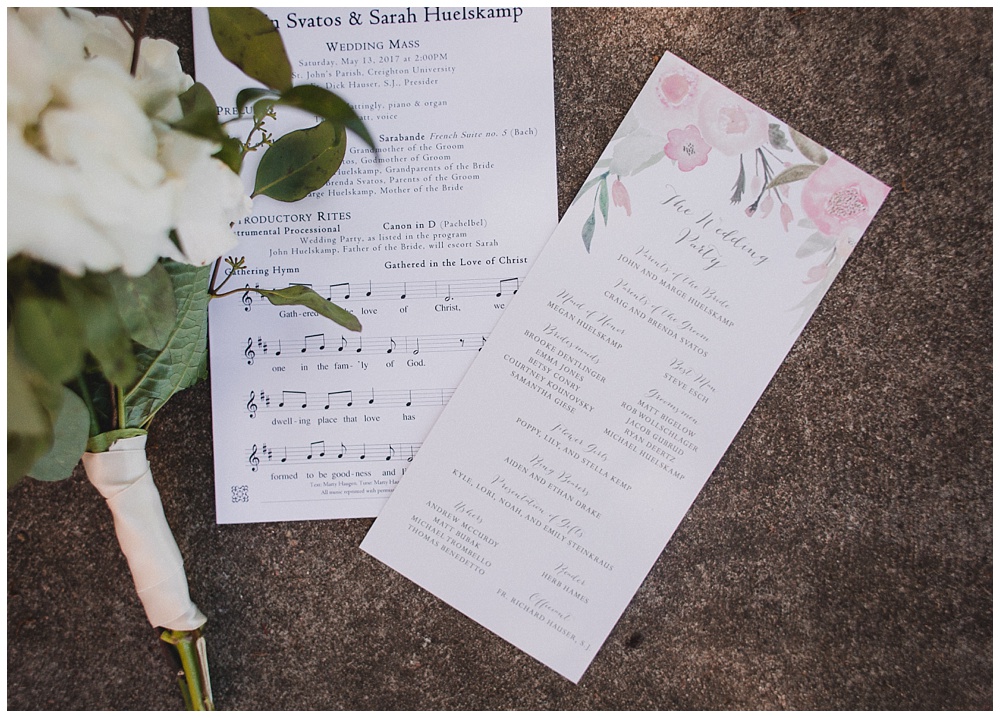 n Svatos & Sarah Huelskamp
WEDDING MASS
Saturday, May 13, 2017 at 2:00PM
St. John's Parish, Creighton University
Dick Hauser, S.J., Presider
PRELU
attingly, piano & organ
att, voice
Sarabande French Suite no. 5 (Bach)
Grandmother of the Groom
tos, Godmother of Groom
Huelskamp, Grandparents of the Bride
Brenda Svatos, Parents of the Groom
arge Huelskamp, Mother of the Bride
TRODUCTORY RITES
strumental Processional Canon in D (Pachelbel)
Wedding Party, as listed in the program
John Huelskamp, Father of the Bride, will escort Sarah
Gathering Hymn Gathered in the Love of Christ
Gath-ered love of Christ, we
one in the fam-'ly of God.
dwell-ing place that love has
formed to be good-ness and
Text: Marty Haugen, Tune: Marty Hau
All music reprinted with permi
The Wedding
Party
Parents of the Bride
JOHN AND MARGE HUELSKAMP
Parents of the Groom
CRAIG AND BRENDA SVATOS
Maid of Honor
MEGAN HUELSKAMP
Bridesmaids
BROOKE DENTLINGER
EMMA JONES
BETSY CONRY
COURTNEY KOUNOVSKY
SAMANTHA GIESE
Best Man
STEVE ESCH
Groomsmen
MATT BIGELOW
ROB WOLLSCHLAGER
JACOB GUBBUD
RYAN DEERTZ
MICHAEL HUELSKAMP
Flower Girls
POPPY, LILY, AND STELLA KEMP
Ring Bearers
AIDEN AND ETHAN DRAKE
Presentation of Gifts
KYLE, LORI, NOAH, AND EMILY STEINKRAUS
Ushers
ANDREW MCCURDY
MATT BUBAK
MICHAEL TROMBELLO
THOMAS BENEDETTO
Reader
HERB HAMES
Officiant
FR. RICHARD HAUSER, S.J.